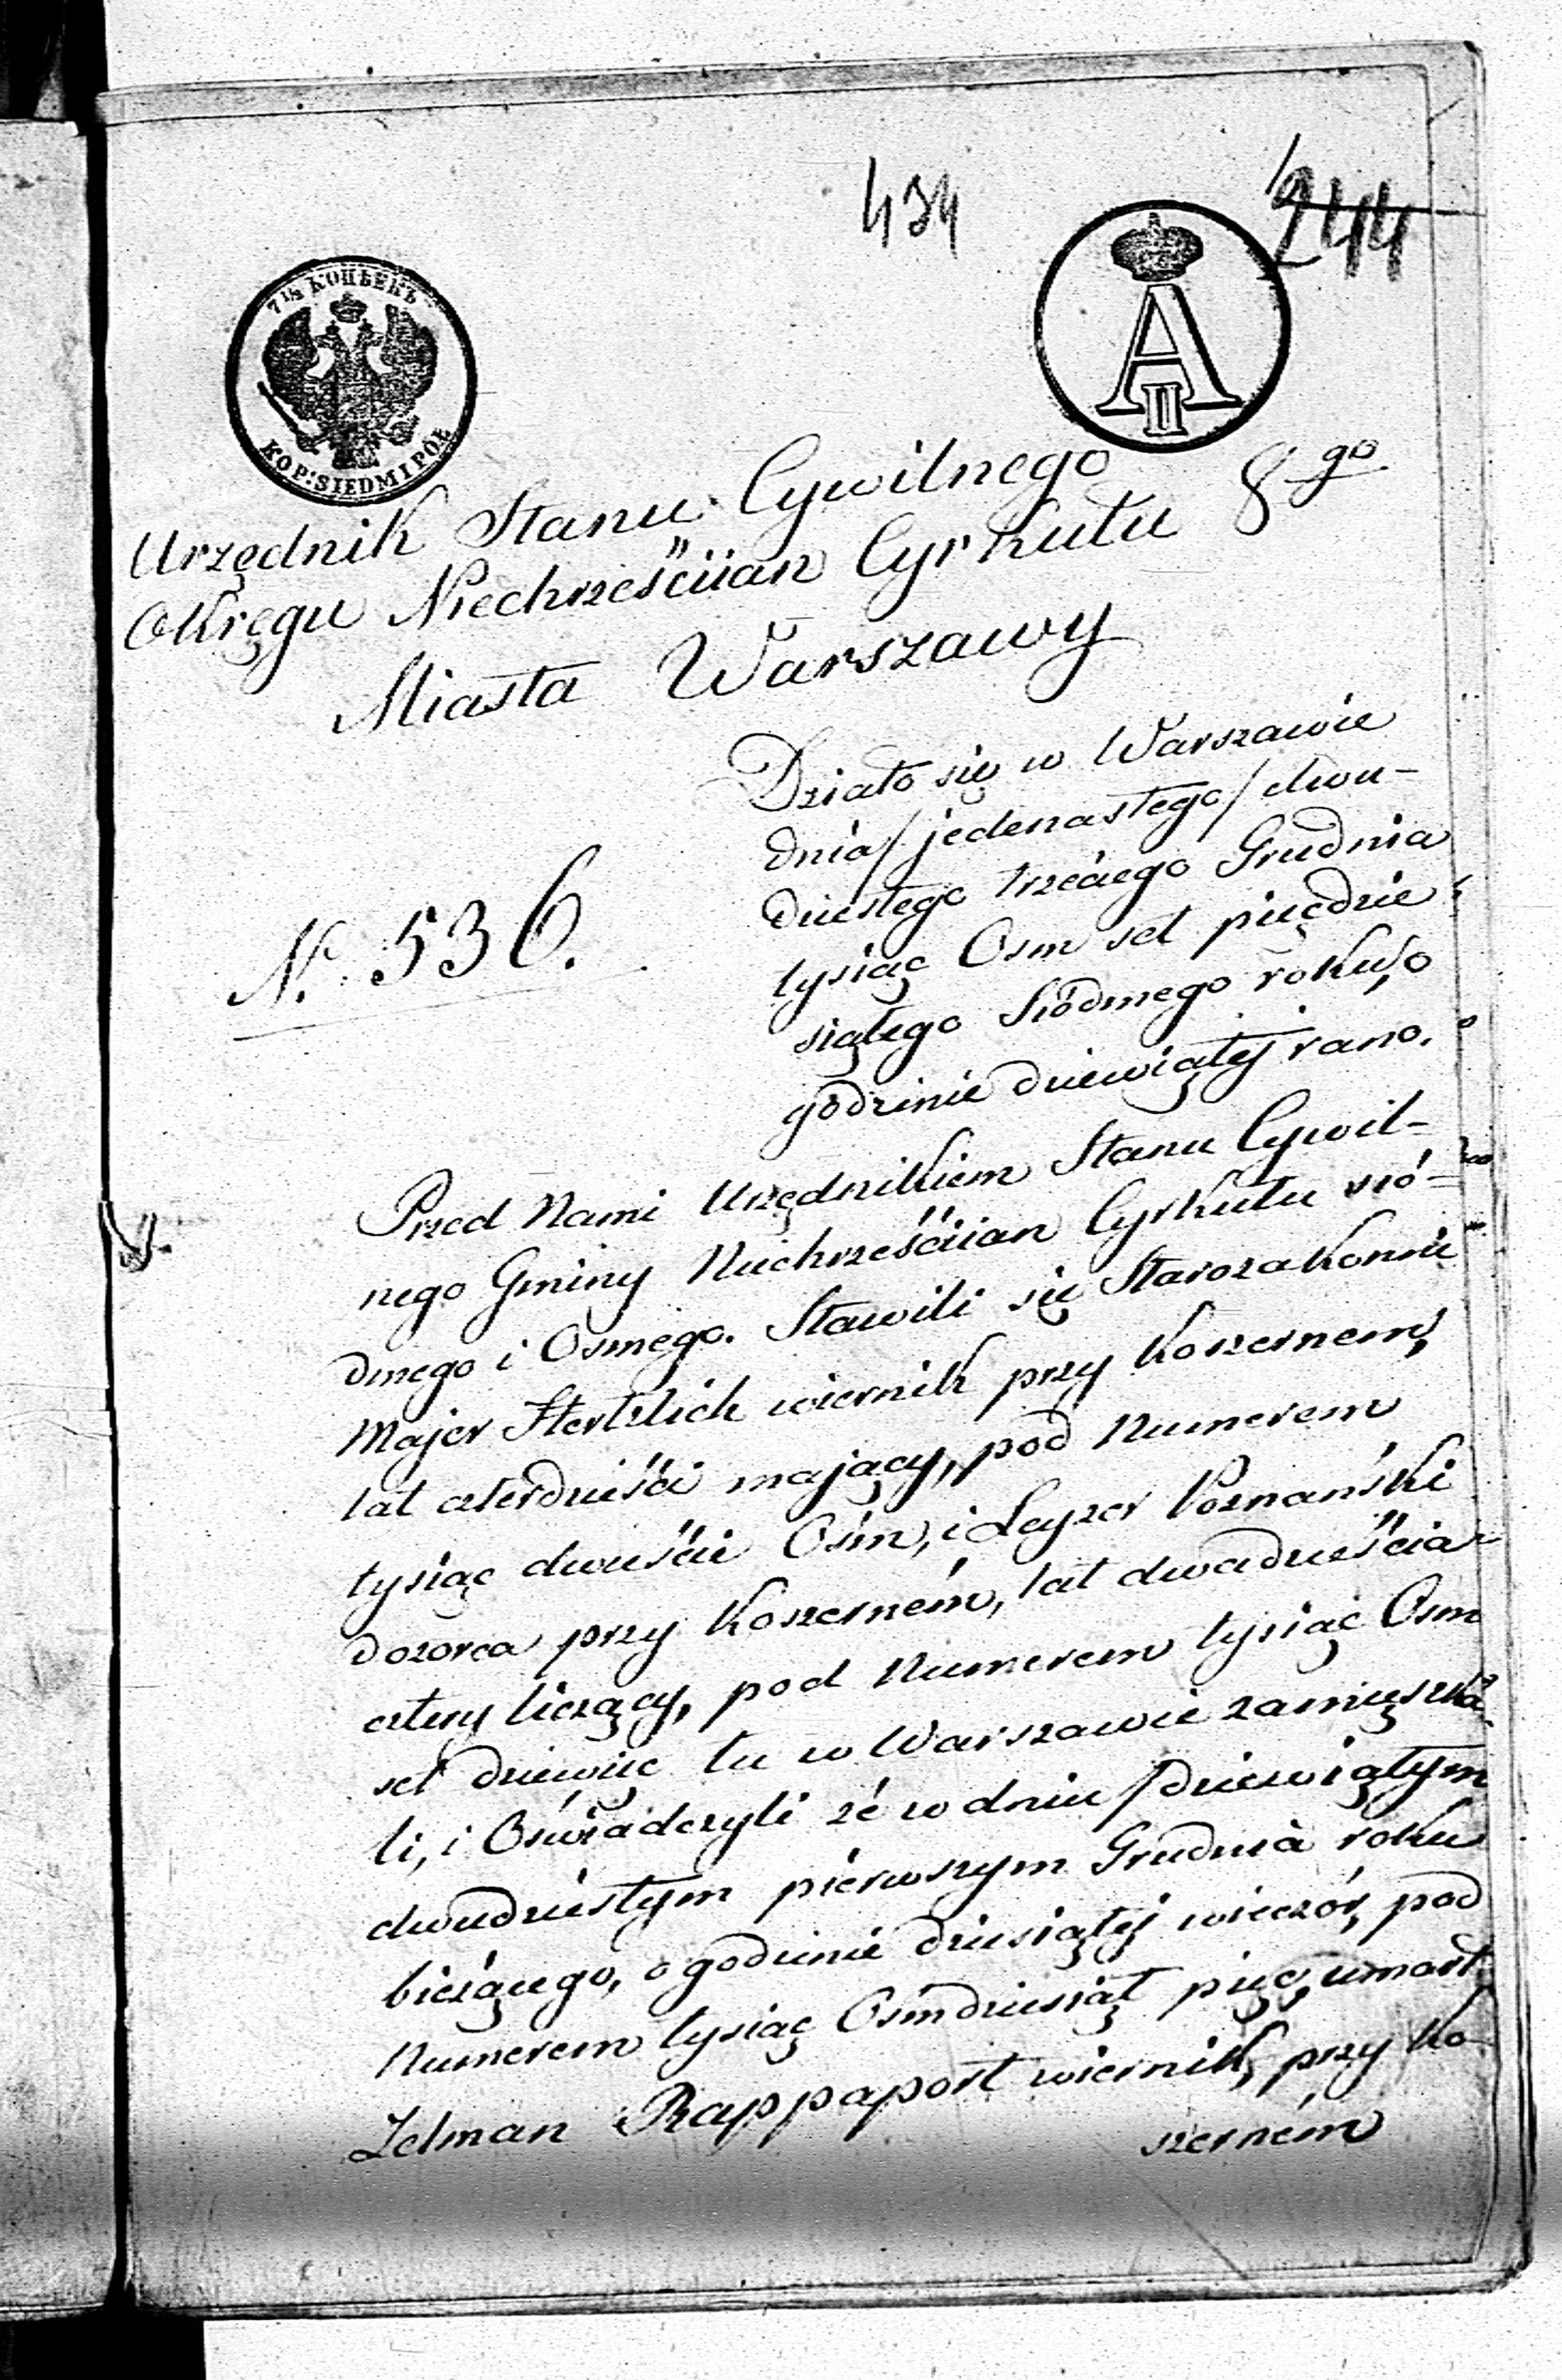 434
244
7 ½ КОПѢЕКЪ
KOP: SIEDM I PÓŁ
A II
Urzędnik Stanu Cywilnego
Okręgu Niechrześciian Cyrkułu 8go
Miasta Warszawy
Działo się w Warszawie
dnia / jedenastego / dwu-
dziestego trzeciego Grudnia
N. 536.
tysiąc Osm set pięćdzie
siątego Siódmego roku, o
godzinie dziewiątej rano.
Przed Nami Urzędnikiem Stanu Cywil-
nego Gminy Niechrześciian Cyrkułu sió-
dmego i Osmego. Stawili się Starozakonni
Majer Hertzlich wiernik przy koszernem,
lat czterdzieści mający, pod Numerem
tysiąc dwieście Ośm, i Leyzer Poznański
dozorca przy koszerném, lat dwadzieścia
cztery liczący, pod Numerem tysiąc Osm
set dziewięć tu w Warszawie zamieszka-
li, i Oświadczyli że w dniu / dziewiątym
dwudziestym pierwszym Grudnia roku
bieżącego, o godzinie dziesiątej wieczór, pod
Numerem tysiąc Osmdziesiąt pięć, umarł
Zelman Rappaport wiernik, przy ko-
szerném